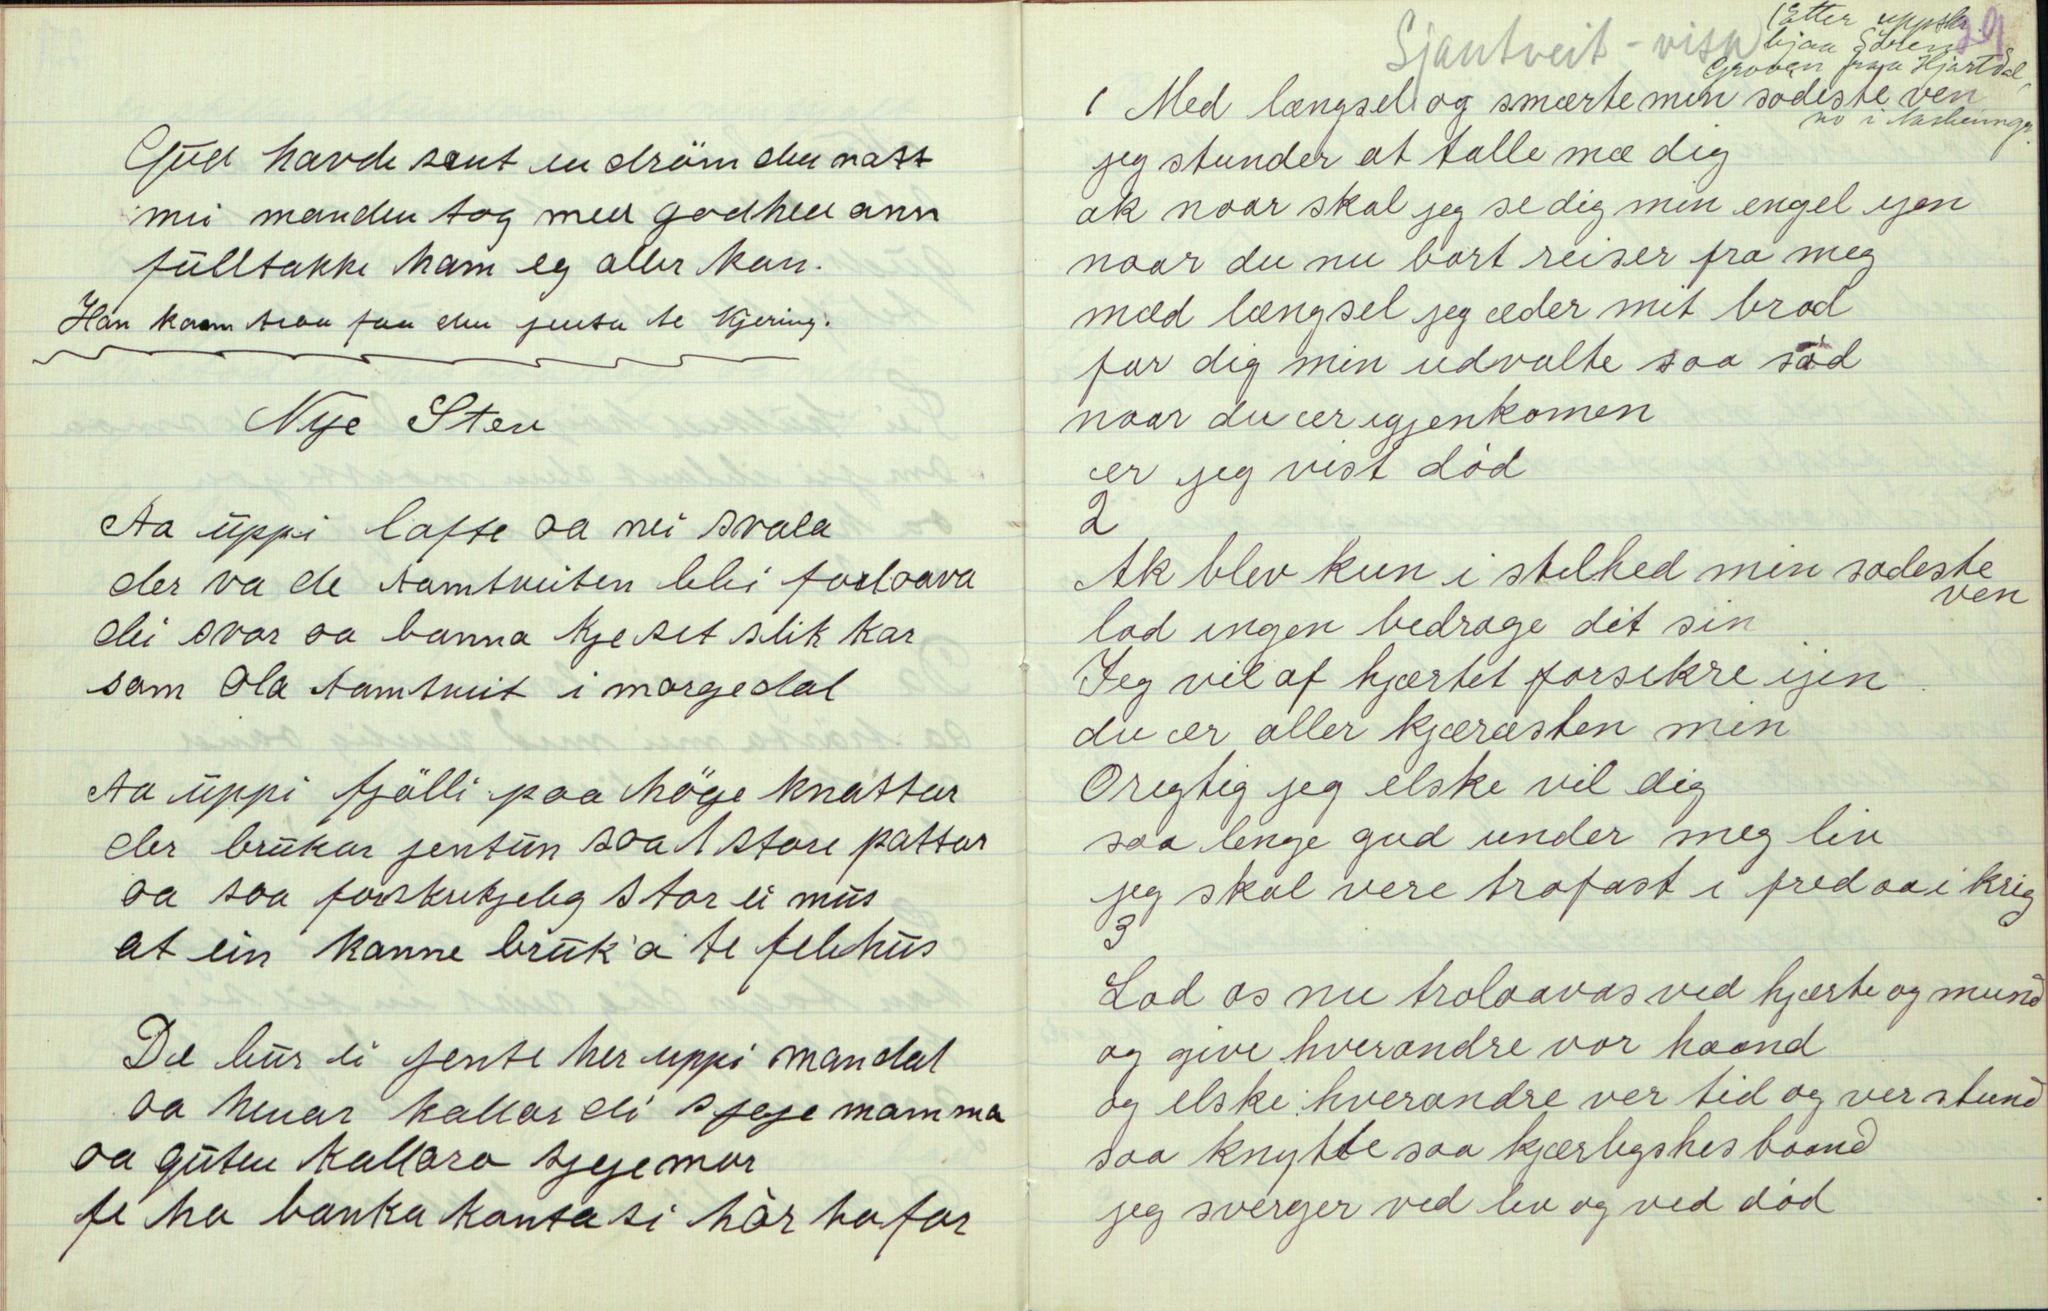 Gud havde sent en dröm den natt
mei manden tog med godhed ann
fulltakke ham eg aller kan.
Han kaam traa faa den jenta te kjering.
Nye Stev
Aa uppi lofte oa nei svala
der va de Aamtveiten blei forloava
dei svor oa banna kje set slik kar
som Ola Aamtveit i morgedal
Aa uppi fjölli paa höge knattar
der brukar jentun soa store pattar
oa soa forskrekjeleg stor ei mus
at ein kanne bruk a te felehus
De bur ei jente her uppi mandal
oa henar kallar dei sjeje mamma
oa guten kallara sjeje mor
fe ha banka konta si hår ho for
29
Sjantveit - visa
(Etter uppskr.
hjaa Sören
Groven fraa Hjartdal,
no i
1 Med længsel og smærte min sodeste ven
jeg stunder at talle mæ dig
ak naar skal jeg se dig min engel ijen
naar du nu bort reiser fra meg
mæd længsel jeg æder mit brød
for dig min udvalte saa sød
naar du ær igjenkomen
ær jeg vist død
2
Ak blev kun i stelhed min sødeste
ven
lad ingen bedrage dit sin
Jeg vil af hjærtet forsekre ijen
du ær aller kjæræsten min
Oregtig jeg elske vil dig
saa lenge gud under meg liv
jeg skal vere trofast i fred oa i krig
3
Lad os nu troloavas ved hjærte og mund
og give hverandre vor haand
og elske hverandre ver tid og ver stund
saa knytte saa kjærlygshes baand
jeg sverger ved lev og ved død